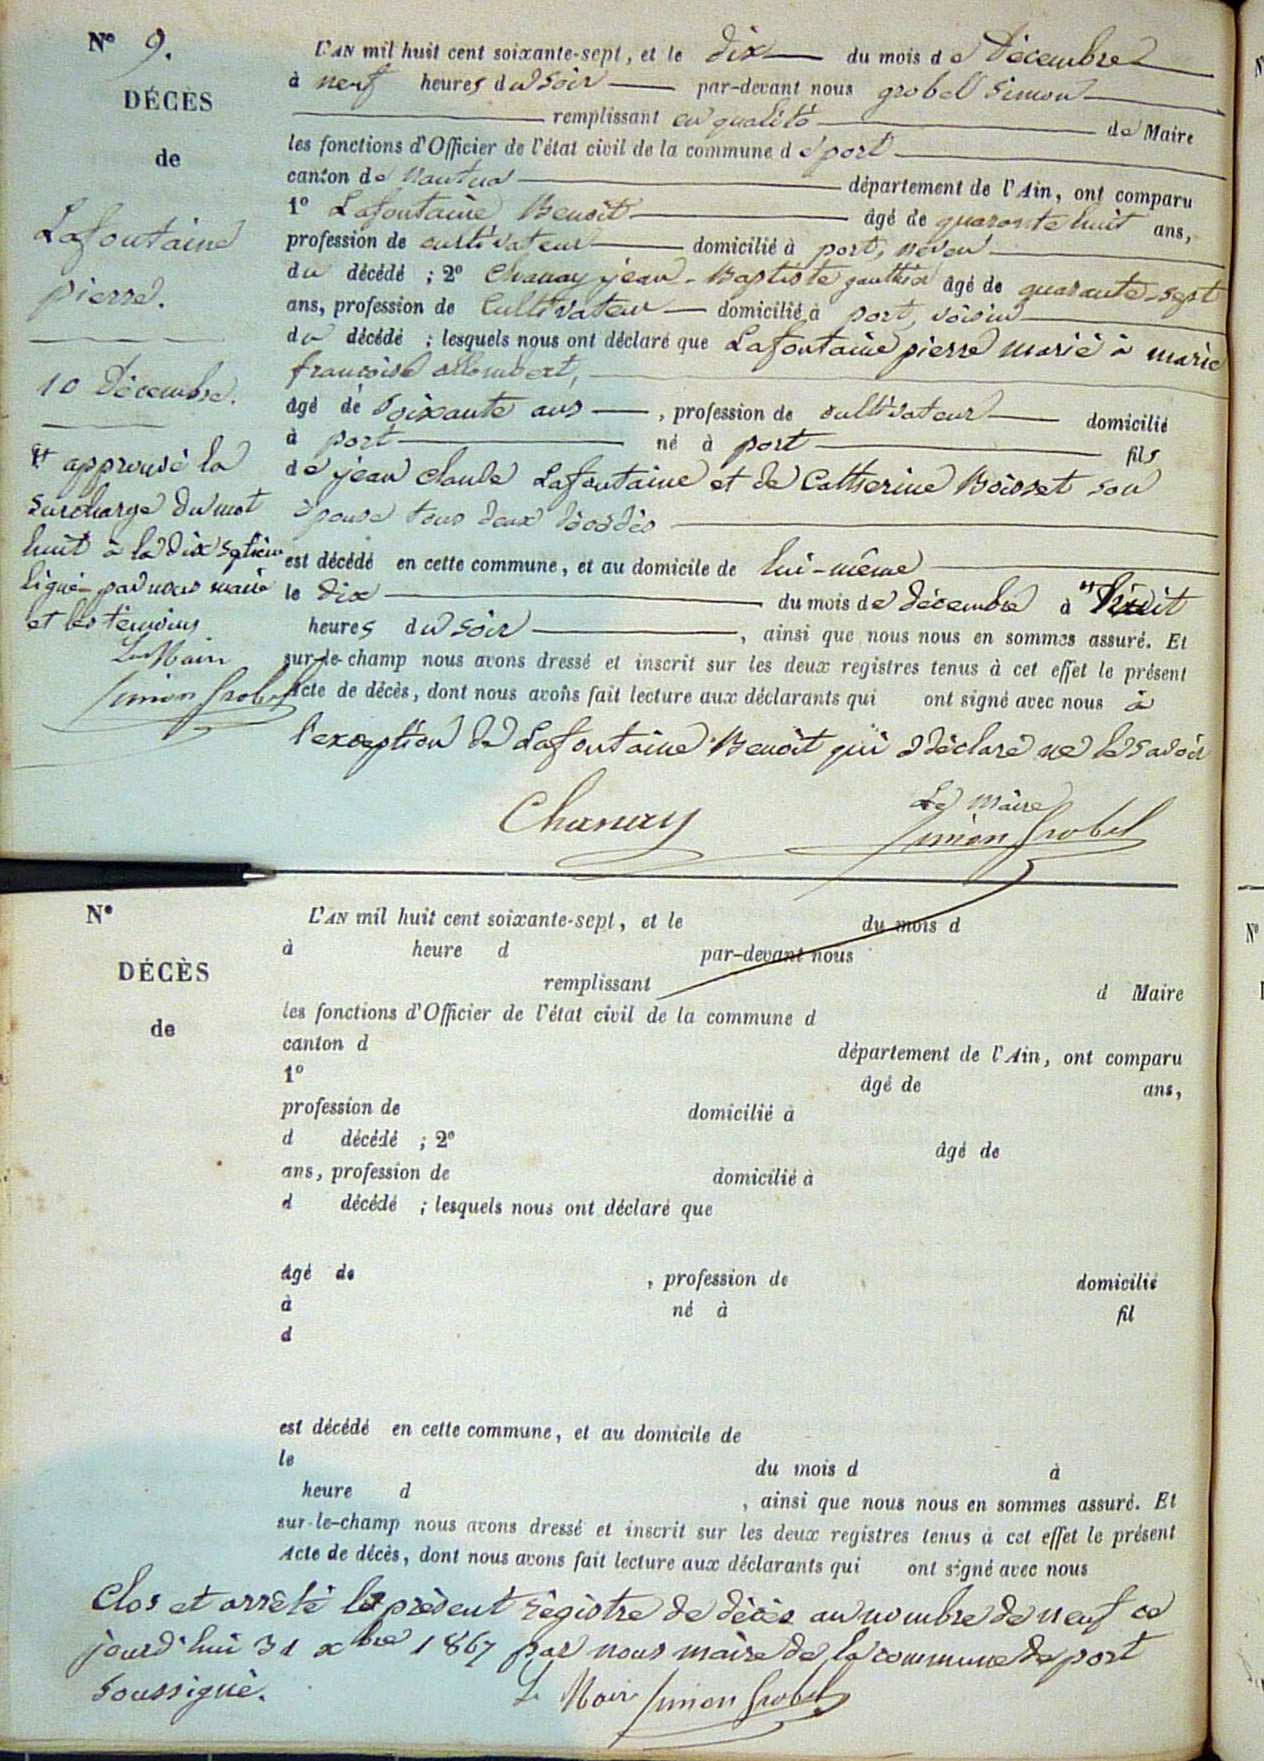 N° 9.
DÉCÈS
de
Lafontaine
pierre.
10 Décembre.
et approuvé la
surcharge du mot
huit à la dix septième
ligne par nous maire
et les témoins
Le Maire
Simon Grobel
L'AN mil huit cent soixante-sept, et le dix du mois de Décembre
à neuf heures du soir par-devant nous grobel Simon
remplissant en qualité de Maire
les fonctions d'Officier de l'état civil de la commune de port
canton de Nantua département de l'Ain, ont comparu
1° Lafontaine Benoit âgé de quarante huit ans,
profession de cultivateur domicilié à port, neveu
du décédé ; 2° Chanay jean-Baptiste gauthier âgé de quarante-sept
ans, profession de Cultivateur domicilié à port, voisin
du décédé ; lesquels nous ont déclaré que Lafontaine pierre marié à marie
françoise allombert,
âgé de soixante ans , profession de cultivateur domicilié
à port né à port fils
de jean claude Lafontaine et de Catherine Boisset son
épouse tous deux décédés
est décédé en cette commune, et au domicile de lui-même
le dix du mois de décembre à huit
heures du soir , ainsi que nous nous en sommes assuré. Et
sur-le-champ nous avons dressé et inscrit sur les deux registres tenus à cet effet le présent
Acte de décès, dont nous avons fait lecture aux déclarants qui ont signé avec nous à
l'exception de Lafontaine Benoit qui a déclaré ne le savoir
Chanay
Le Maire
Simon Grobel
N°
DÉCÈS
de
L'AN mil huit cent soixante-sept, et le du mois d
à heure d par-devant nous
remplissant d Maire
les fonctions d'Officier de l'état civil de la commune d
canton d département de l'Ain, ont comparu
1° âgé de ans,
profession de domicilié à
d décédé ; 2° âgé de
ans, profession de domicilié à
d décédé ; lesquels nous ont déclaré que
âgé de , profession de domicilié
à né à fil
d
est décédé en cette commune, et au domicile de
le du mois d à
heure d , ainsi que nous nous en sommes assuré. Et
sur-le-champ nous avons dressé et inscrit sur les deux registres tenus à cet effet le présent
Acte de décès, dont nous avons fait lecture aux déclarants qui ont signé avec nous
Clos et arrêté le présent régistre de décès au nombre de neuf ce
jourd'hui 31 xbre 1867 par nous maire de la commune de port
soussigné.
Le Maire Simon Grobel